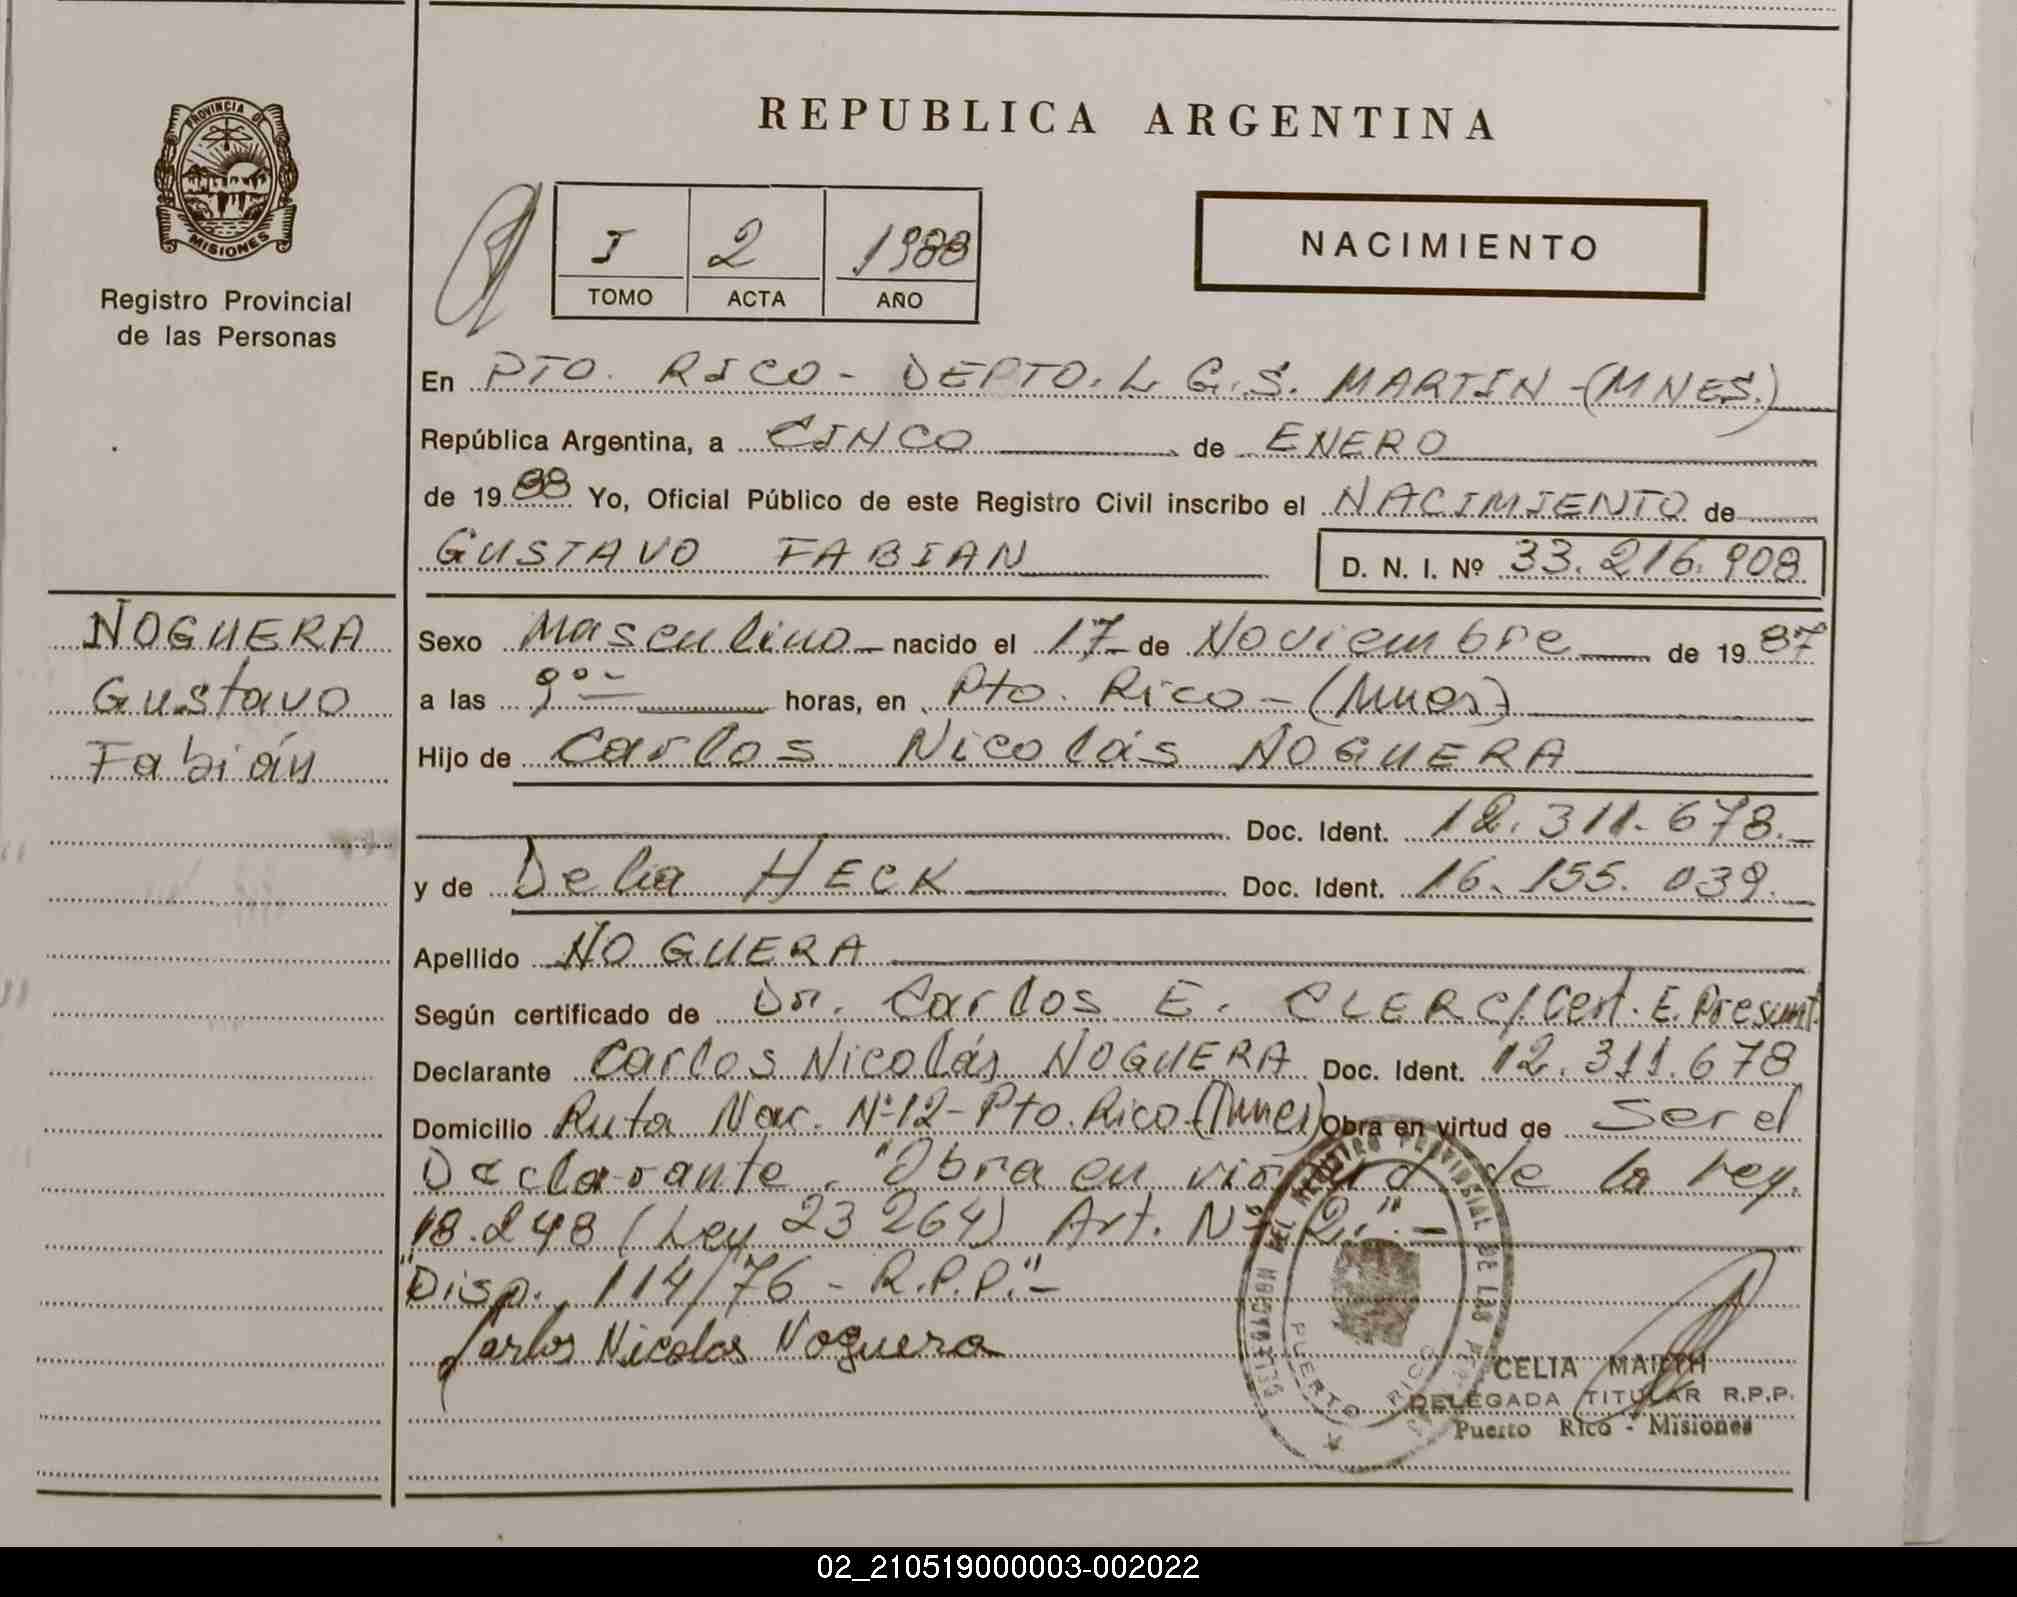 REPUBLICA ARGENTINA
PROVINCIA DE
MISIONES
Registro Provincial
de las Personas
I 2 1988
TOMO ACTA AÑO
NACIMIENTO
En PTO. RICO - DEPTO. L. G. S. MARTIN - (MNES.)
República Argentina, a CINCO de ENERO
de 1988 Yo, Oficial Público de este Registro Civil inscribo el NACIMIENTO de
GUSTAVO FABIAN D. N. I. Nº 33.216.908
NOGUERA
Gustavo
Fabián
Sexo Masculino nacido el 17 de Noviembre de 1987
a las 9°° horas, en Pto. Rico - (Mnes)
Hijo de Carlos Nicolás NOGUERA
Doc. Ident. 12.311.678.
y de Delia HECK Doc. Ident. 16.155.039.
Apellido NOGUERA
Según certificado de Dr. Carlos E. CLERC/Cert. E. Presunt.
Declarante Carlos Nicolás NOGUERA Doc. Ident. 12.311.678
Domicilio Ruta Nac. Nº 12 - Pto. Rico - (Mnes) Obra en virtud de Ser el
Declarante. "Obra en virtud de la Ley.
18.248 (Ley 23264) Art. Nº 2." -
"Disp. 114/76 - R.P.P." -
Carlos Nicolas Noguera
DEL REGISTRO PROVINCIAL DE LAS
PUERTO RICO
CELIA
DELEGADA TITULAR R.P.P.
Puerto Rico - Misiones
02_210519000003-002022